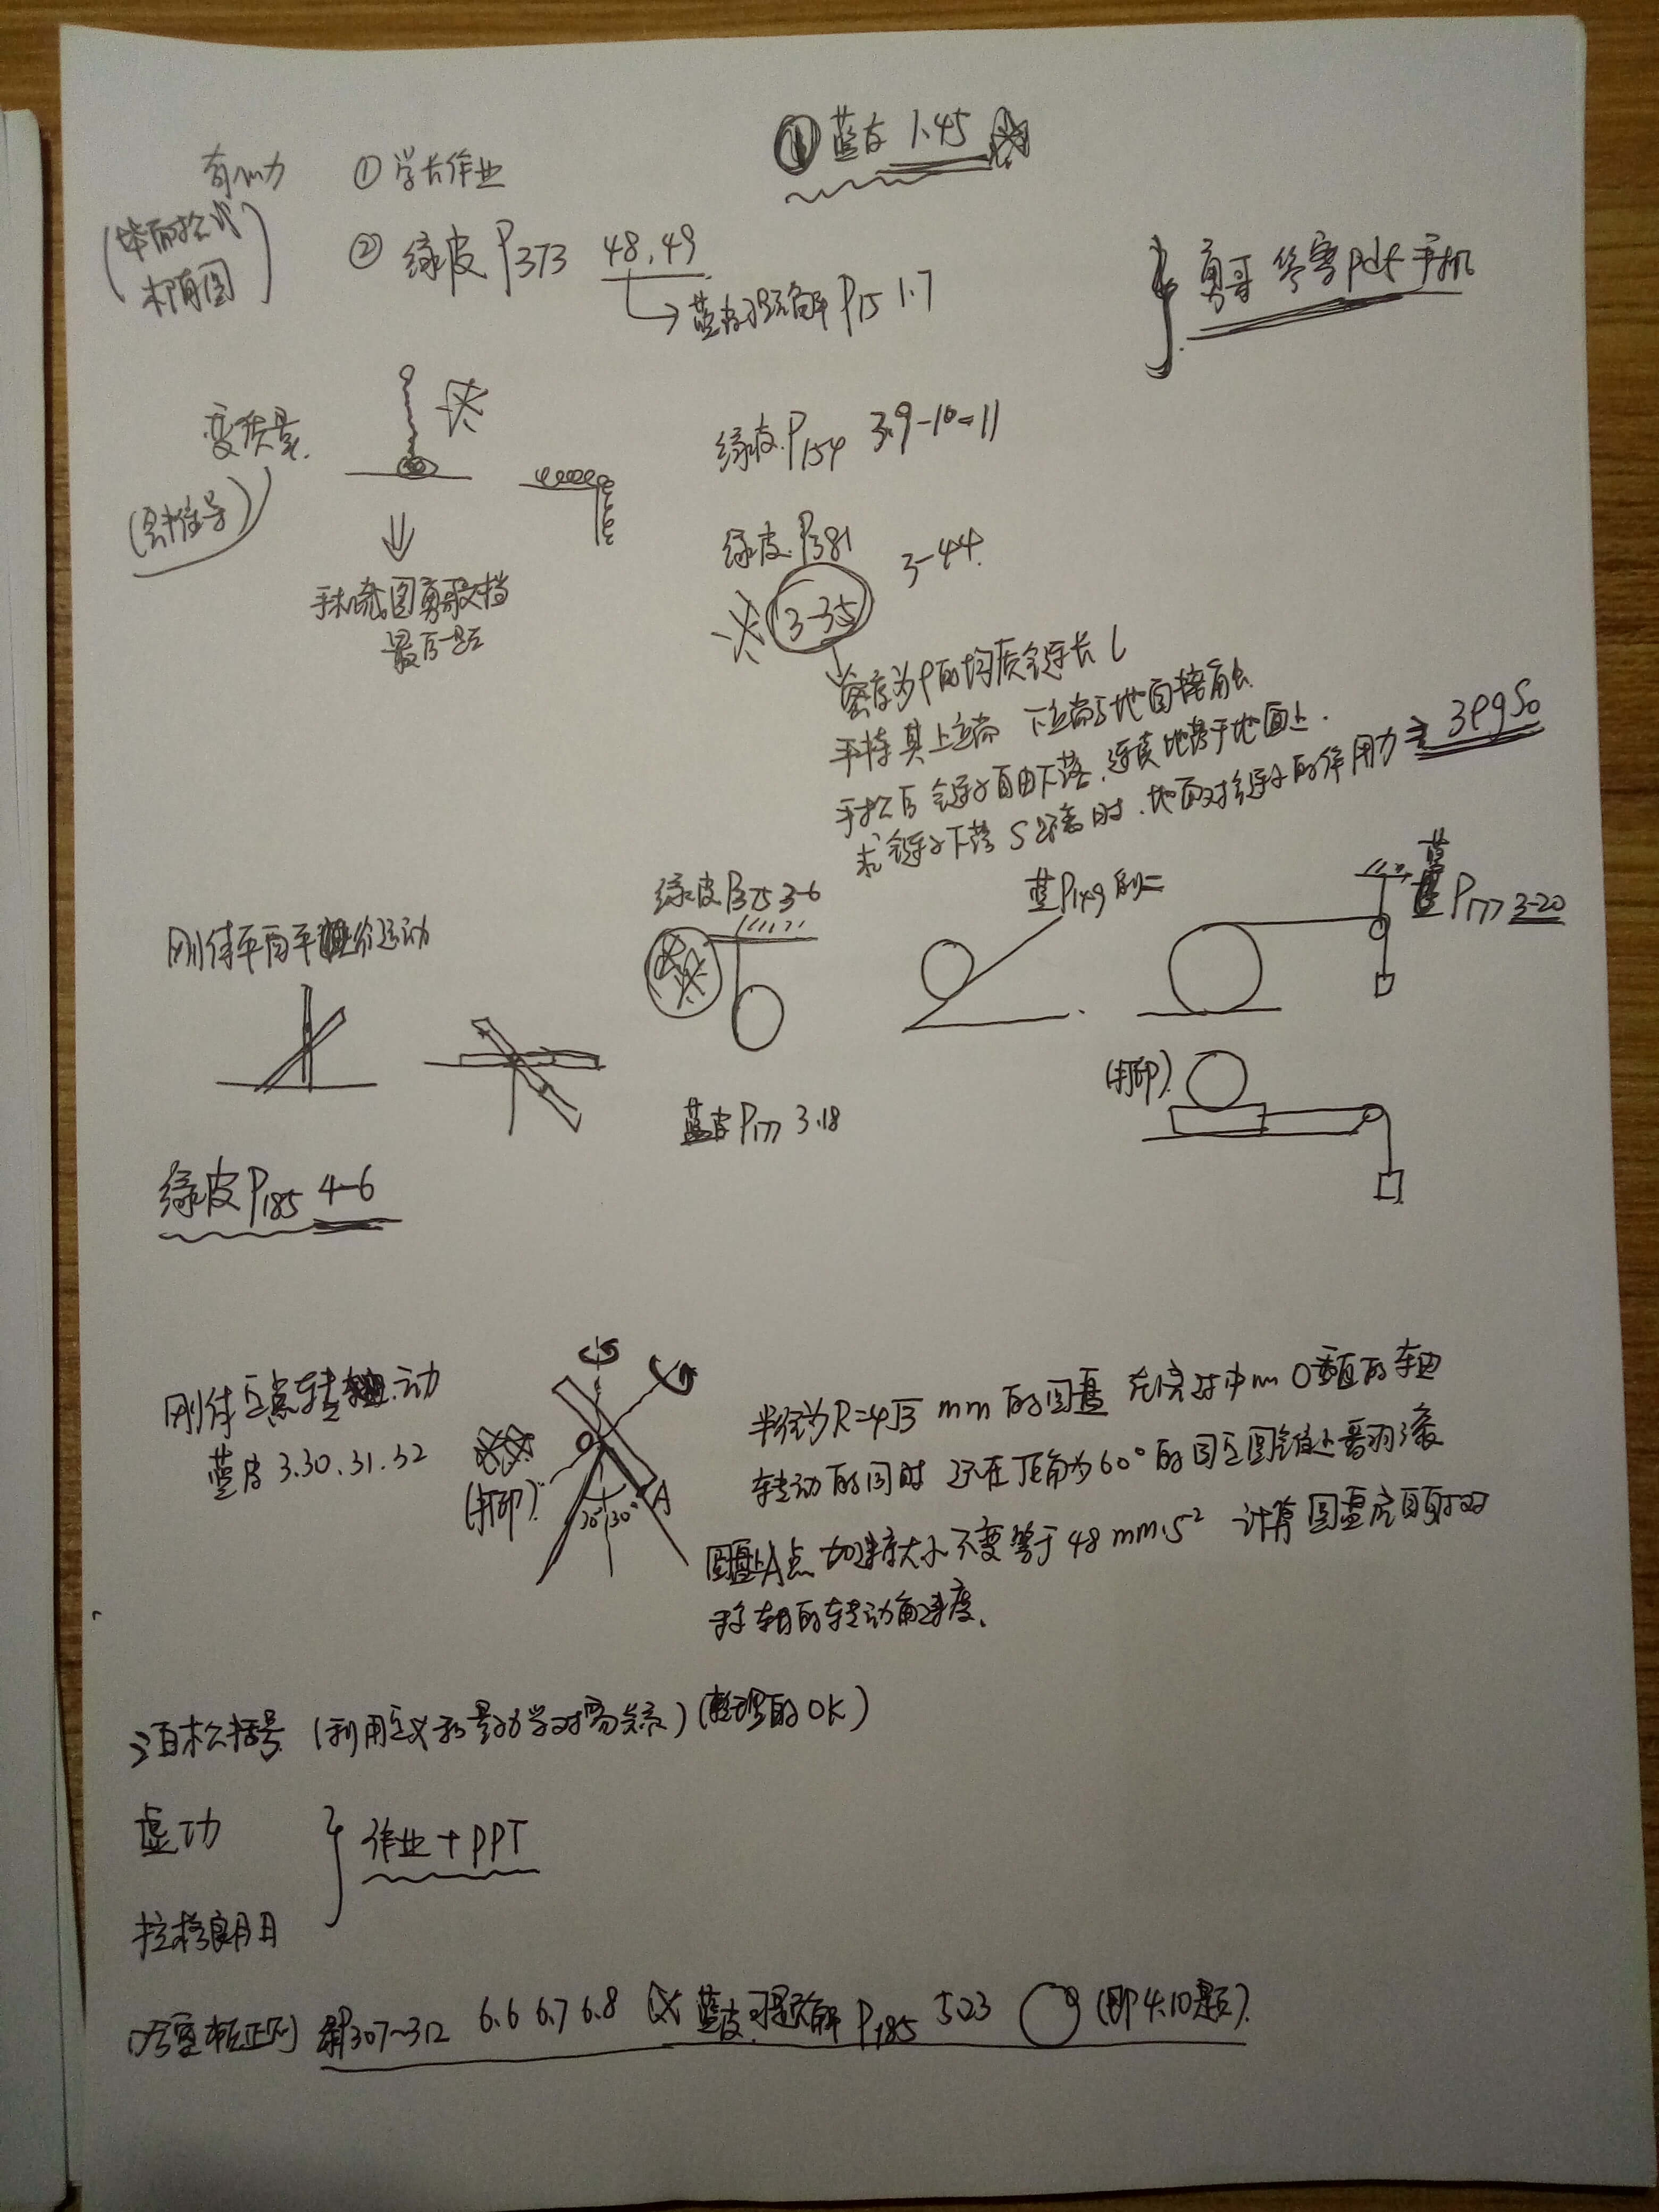 ① 蓝皮 1.45
有心力 ① 学长作业
(比耐公式
相图)
② 绿皮 P373 48.49
→ 蓝皮习题解 P15 1.7
勇哥 答案pdf 手机
变质量
(会推导)
绿皮 P154 3.9-10-11
绿皮 P381 3-44
3-35
手机截图勇哥文档
最后一题
密度为ρ的均质链长 l
手持其上端 下端与地面接触
手松后 链子自由下落,连续地落于地面上.
求链子下落 S 距离时.地面对链子的作用力 3ρgS0
刚体平面平行运动
绿皮 P375 3-6
蓝P149 例二
蓝 P177 3-20
蓝皮 P177 3.18
(打印)
绿皮 P185 4-6
刚体定点转动
蓝皮 3.30.31.32
(打印)
O
A
30° 30°
半径为R=4√3 mm 的圆盘 在绕其中心O垂直的轴
转动的同时 还在顶角为60°的固定圆锥上面翻滚
圆盘上A点 加速度大小不变等于 48 mm.s² 计算 圆盘底自身对
称轴的转动角速度.
泊松括号 (利用定义和量子力学对易关系) (整理的OK)
虚功
作业+PPT
拉格朗日
哈密顿正则 绿307~312 6.6 6.7 6.8 蓝皮习题解 P185 5.23 (即4.10题)